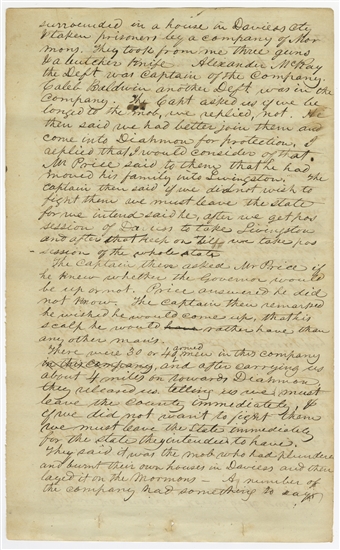 surrounded in a house in Daviess Cty
& taken prisoners by a company of Mor
mons. They took from me three guns
& a butcher Knife Alexander McRay
the Deft was Captain of the Company.
Caleb Baldwin another Deft was in the
Company. The Capt asked us if we be
longed to the mob, we replied, not. He
then said we had better join them and
come into Diahmon for protection, I
replied that I would consider of that.
Mr Price said to them that he had
moved his family into Livingston. The
captain then said if we did not wish to
fight them we must leave the state
for we intend said he, after we get pos
session of Daviess to take Livingston
and after that keep on till we take pos
session of the whole state
The Captain then asked Mr Price if
he Knew whether the Governor would
be up or not. Price answered he did
not Know. The Captain then remarked
he wished he would come up, that his
scalp he would have rather have than
any other man's.
There were 30 or 40 armed men in this company
in this company, and after carrying us
about 4 miles on towards Diahmon
they released us telling us we must
leave the County immediately, &
if we did not want to fight them
we must leave the State immediately
for the state they intended to have.
They said it was the mob who had plundered
and burnt their own houses in Daviess and then
layed it on the Mormons – A number of
the company had something to say